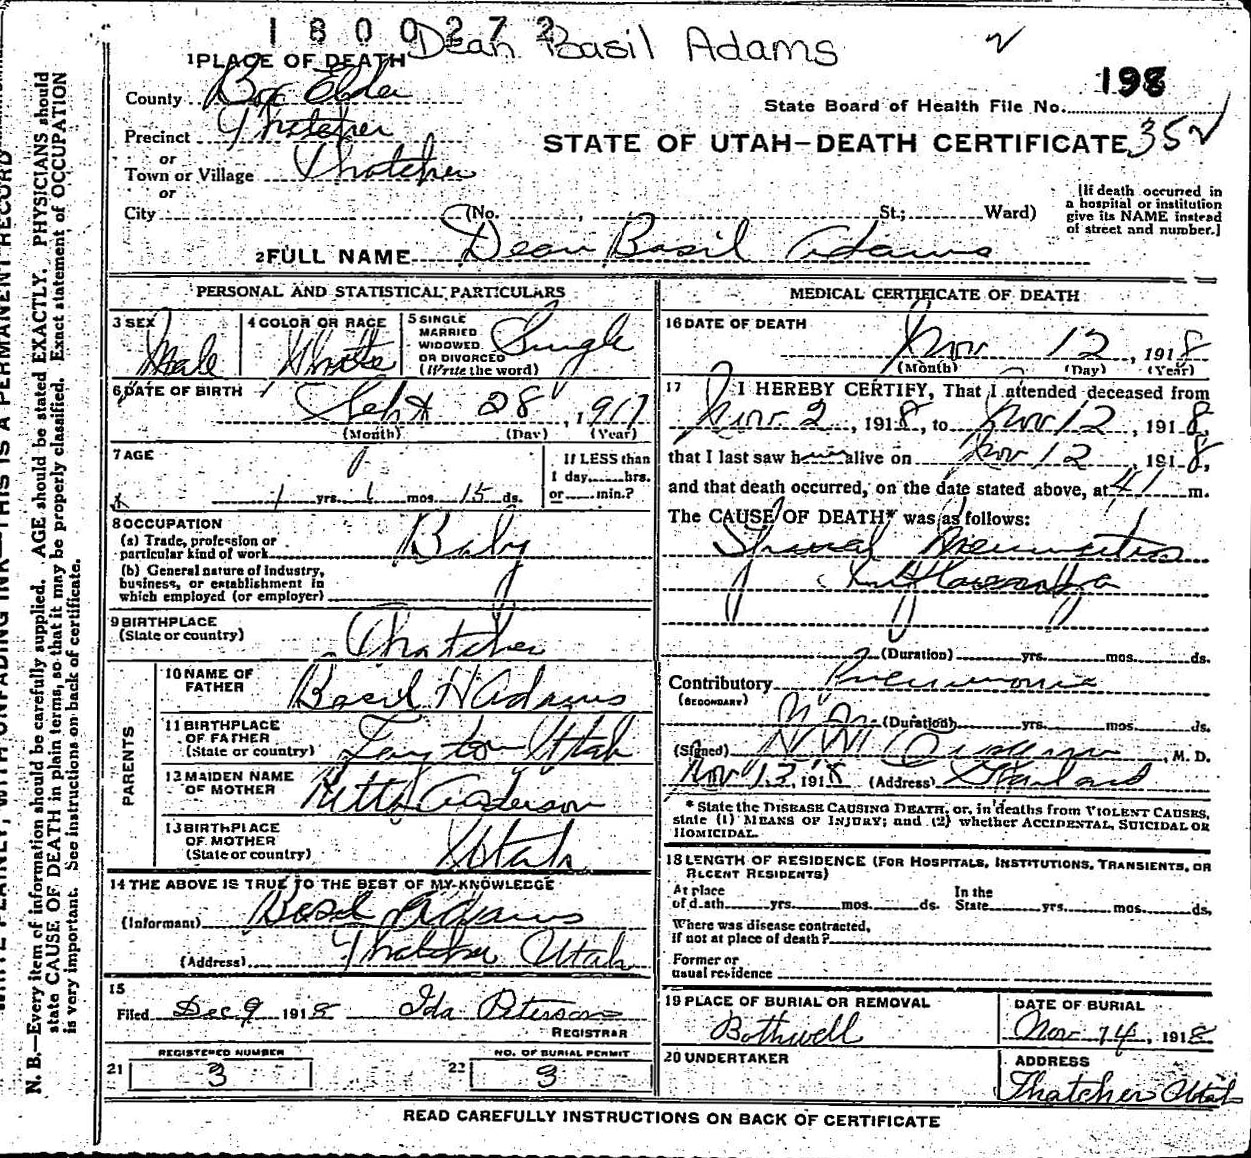 1800272
Dean Basil Adams
1 PLACE OF DEATH
198
County Box Elder
State Board of Health File No.
Precinct Thatcher
STATE OF UTAH—DEATH CERTIFICATE 352
or
Town or Village Thatcher
or
City (No. , St.; Ward)
[If death occurred in
a hospital or institution
give its NAME instead
of street and number.]
2 FULL NAME Dean Basil Adams
PERSONAL AND STATISTICAL PARTICULARS
3 SEX Male
4 COLOR OR RACE White
5 SINGLE
MARRIED
WIDOWED
OR DIVORCED
(Write the word)
Single
6 DATE OF BIRTH
Sept 28, 1917
(Month) (Day) (Year)
7 AGE
1 yrs. 1 mos. 15 ds.
If LESS than
1 day, hrs.
or min.?
8 OCCUPATION
(a) Trade, profession or
particular kind of work Baby
(b) General nature of Industry,
business, or establishment in
which employed (or employer)
9 BIRTHPLACE
(State or country) Thatcher
PARENTS
10 NAME OF
FATHER Basil H Adams
11 BIRTHPLACE
OF FATHER
(State or country) Layton Utah
12 MAIDEN NAME
OF MOTHER Anderson
13 BIRTHPLACE
OF MOTHER
(State or country) Utah
14 THE ABOVE IS TRUE TO THE BEST OF MY KNOWLEDGE
(Informant) Basil Adams
(Address) Thatcher Utah
15
Filed Dec 9 1918 Ida Peterson
REGISTRAR
REGISTERED NUMBER
21 3
NO. OF BURIAL PERMIT
22 3
MEDICAL CERTIFICATE OF DEATH
16 DATE OF DEATH
Nov 12, 1918
(Month) (Day) (Year)
17 I HEREBY CERTIFY, That I attended deceased from
Nov 2, 1918, to Nov 12, 1918,
that I last saw him alive on Nov 12, 1918,
and that death occurred, on the date stated above, at 4 m.
The CAUSE OF DEATH* was as follows:
Influenza
(Duration) yrs. mos. ds.
Contributory Pneumonia
(SECONDARY)
(Duration) yrs. mos. ds.
(Signed) , M. D.
Nov 13, 1918 (Address) Garland
* State the DISEASE CAUSING DEATH, or, in deaths from VIOLENT CAUSES,
state (1) MEANS OF INJURY; and (2) whether ACCIDENTAL, SUICIDAL OR
HOMICIDAL.
18 LENGTH OF RESIDENCE (FOR HOSPITALS, INSTITUTIONS, TRANSIENTS, OR
RECENT RESIDENTS)
At place
of death yrs. mos. ds.
In the
State yrs. mos. ds.
Where was disease contracted,
if not at place of death?
Former or
usual residence
19 PLACE OF BURIAL OR REMOVAL
Bothwell
DATE OF BURIAL
Nov 14, 1918
20 UNDERTAKER
ADDRESS
Thatcher Utah
READ CAREFULLY INSTRUCTIONS ON BACK OF CERTIFICATE
WITH UNFADING INK—THIS IS A PERMANENT RECORD
N. B.—Every item of information should be carefully supplied. AGE should be stated EXACTLY. PHYSICIANS should
state CAUSE OF DEATH in plain terms, so that it may be properly classified. Exact statement of OCCUPATION
is very important. See instructions on back of certificate.